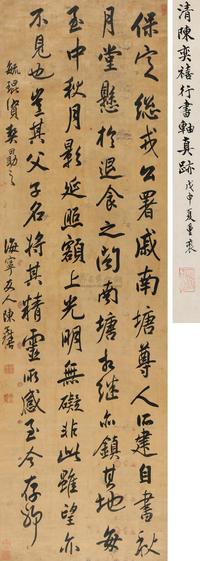 清陳奕禧行書軸真跡
戊申夏重裝
保定總戎公署戚南塘尊人所建自書秋
月堂懸於退食之閣南塘相繼亦鎮其地每
至中秋月影延照額上光明無礙非此雖望亦
不見也豈其父子名將其精靈所感至今存耶
毓琨賢契勗之
海寧友人陳奕禧